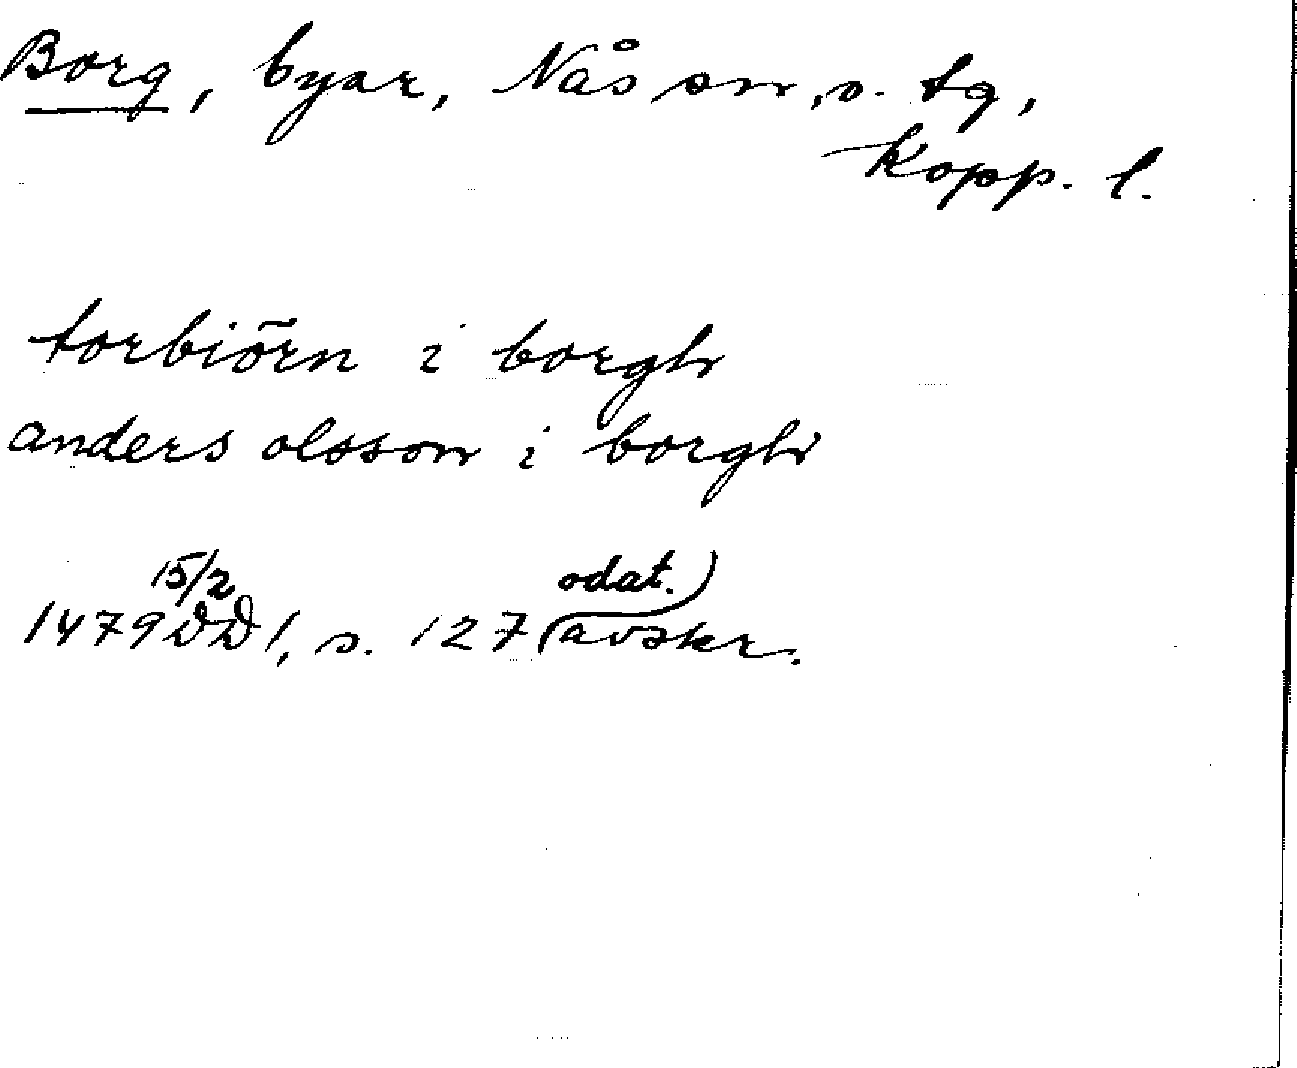 Borg, byar, Nås sn, s. tg,
Kopp. l.
torbiörn i borgh
anders olsson i borgh
1479 15/2 DD 1, s. 127 (odat. avskr.)